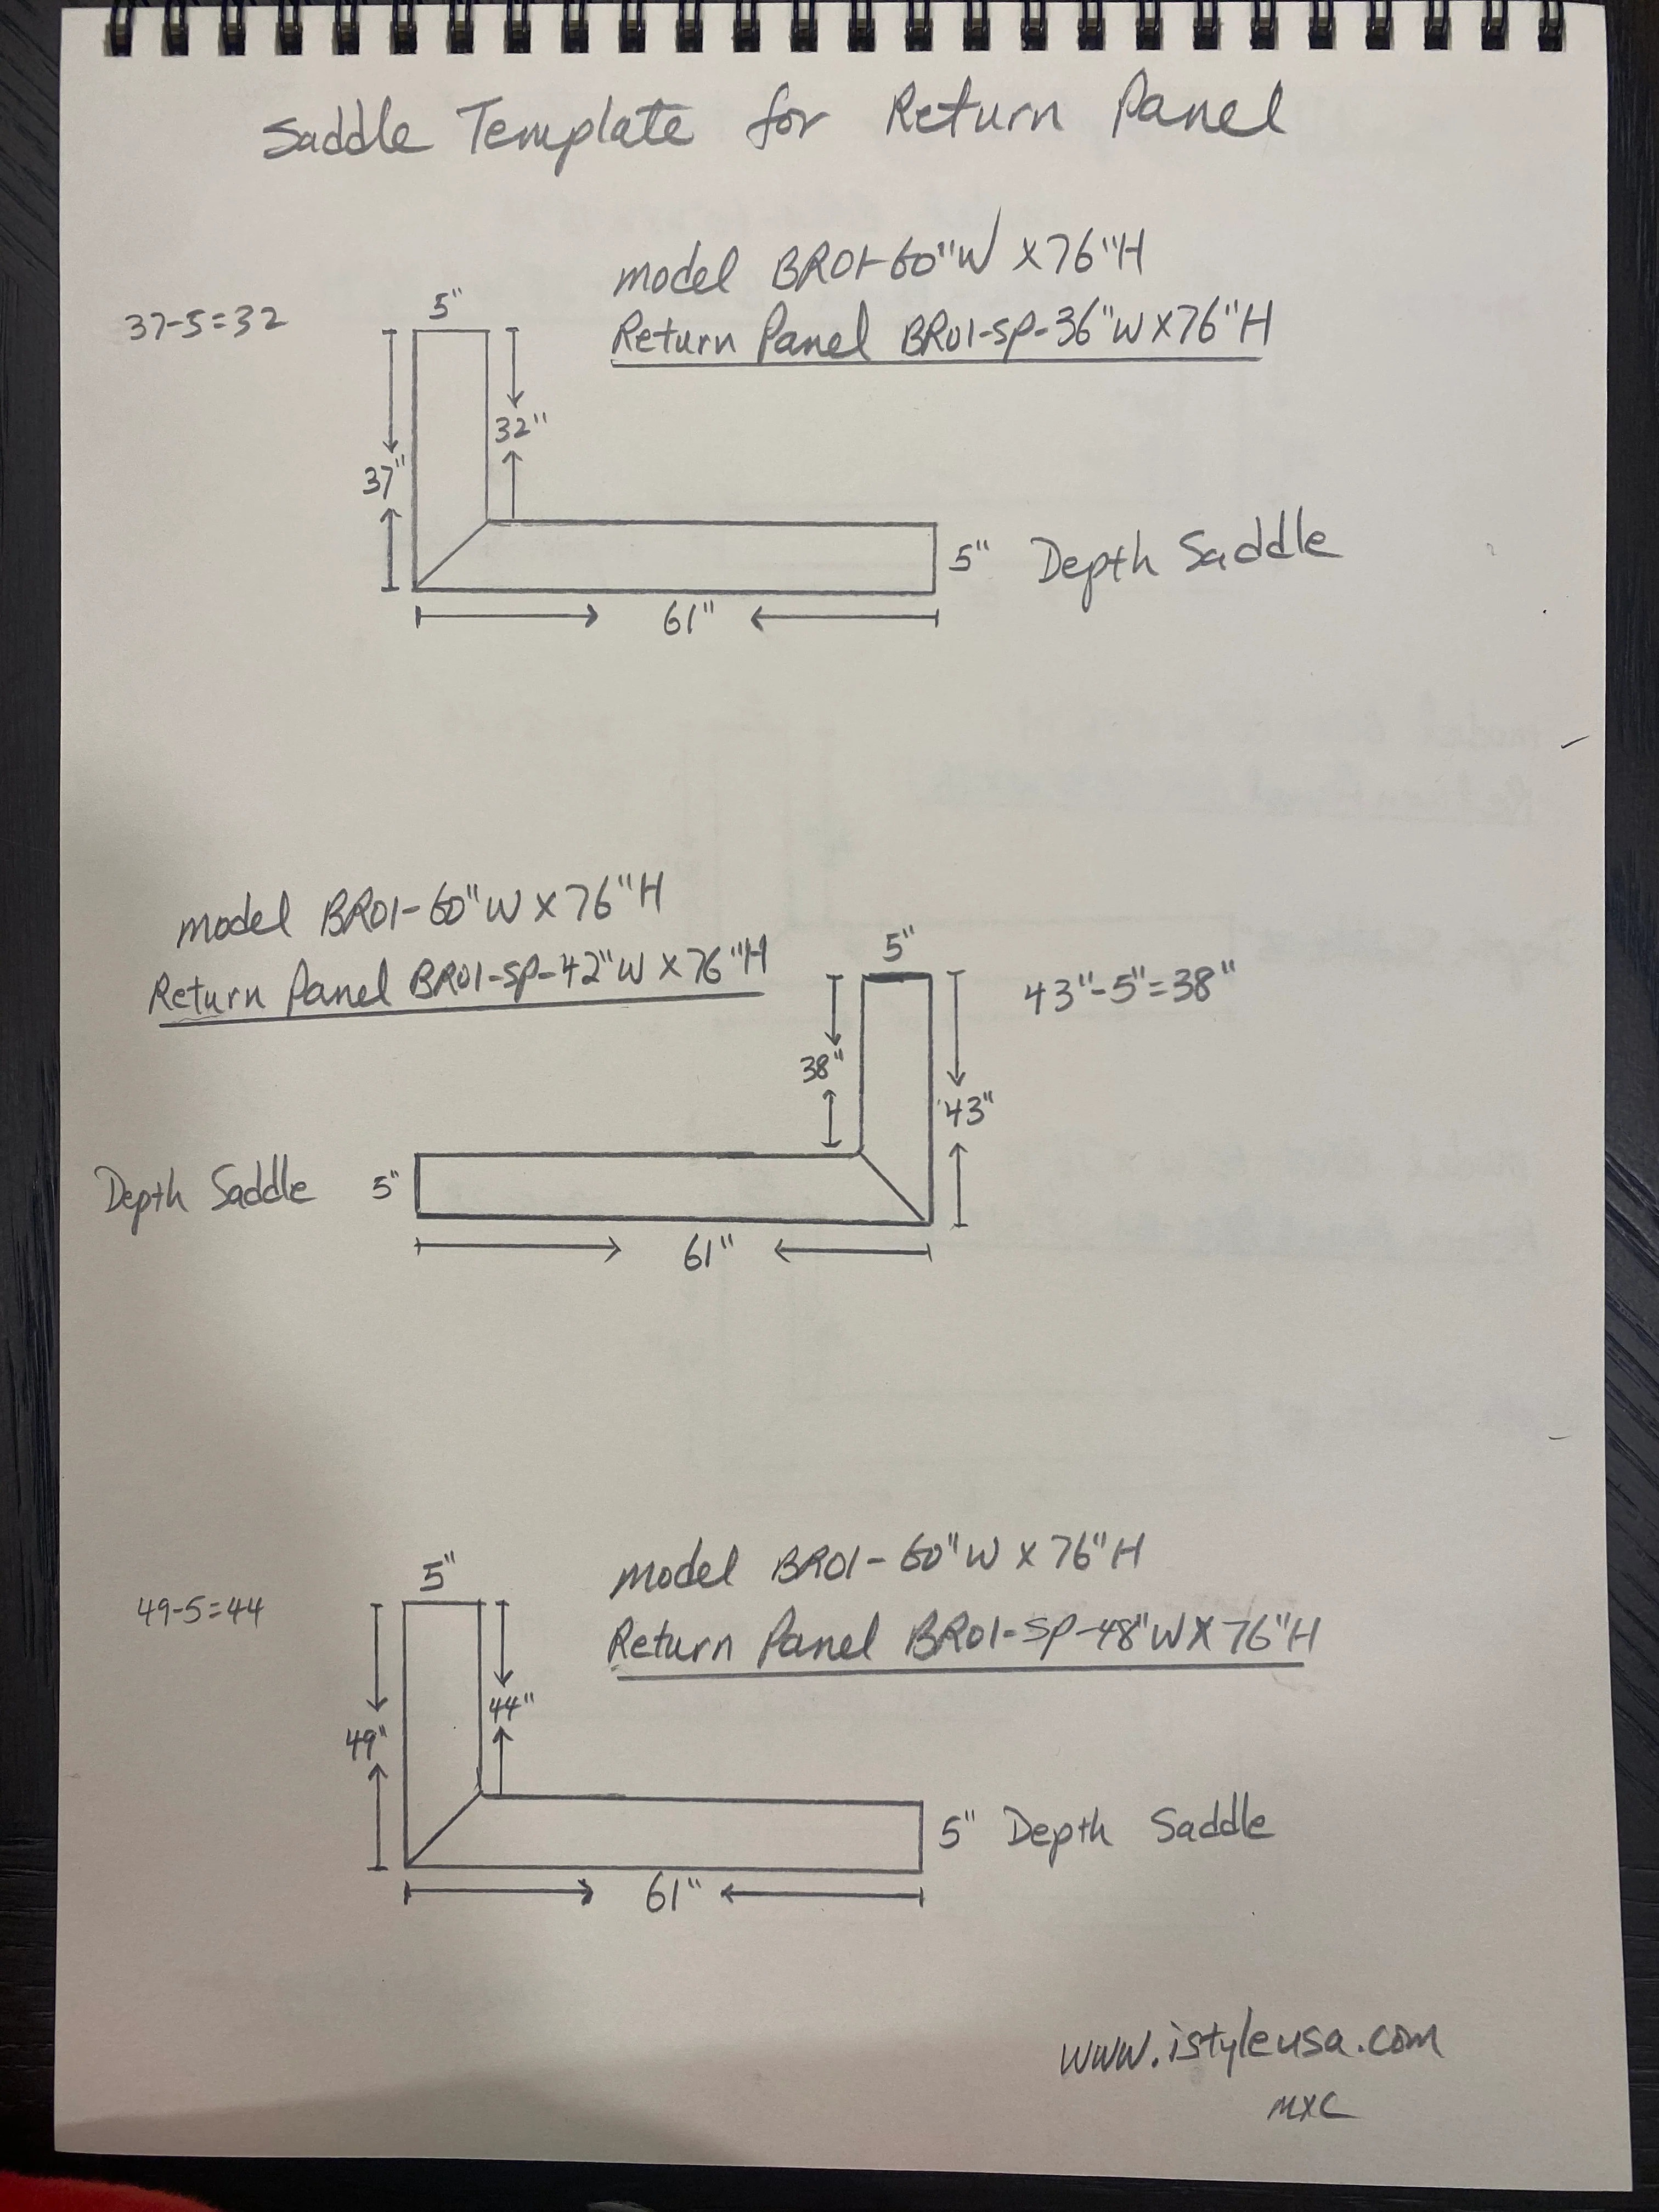 Saddle Template for Return Panel
model BR01-60"W X76"H
Return Panel BR01-SP-36"W X76"H
37-5=32
5"
32"
37"
5" Depth Saddle
61"
model BR01-60"W X 76"H
Return Panel BR01-SP-42"W X 76"H
5"
43"-5"=38"
38"
43"
Depth Saddle 5"
61"
model BR01-60"W X 76"H
Return Panel BR01-SP-48"W X 76"H
5"
49-5=44
44"
49"
5" Depth Saddle
61"
www.istyleusa.com
MXC